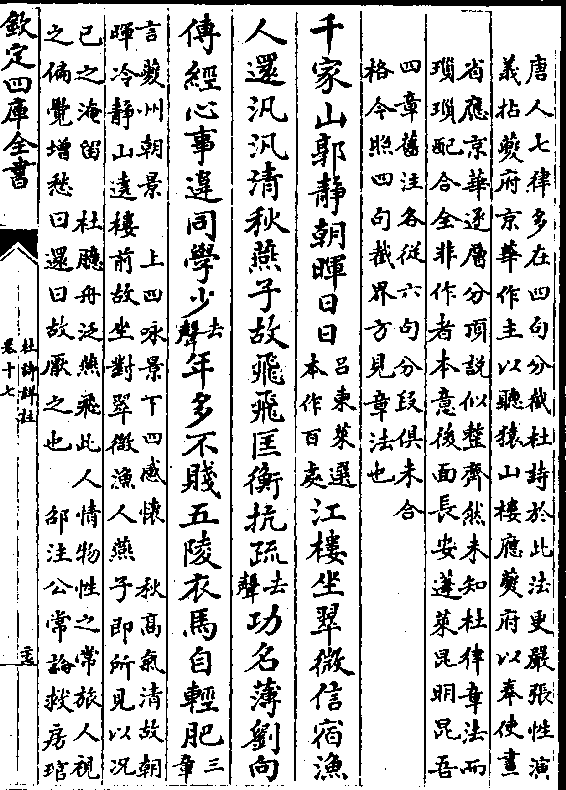 唐人七律多在四句分截杜詩於此法更嚴張性演
義拈夔府京華作主以聽猿山樓應夔府以奉使畫
省應京華逐層分頂說似整齊然未知杜律章法而
瑣瑣配合全非作者本意後面長安蓬萊昆明昆吾
四章舊注各從六句分段俱未合
格今照四句截界方見章法也
千家山郭静朝暉日日呂東萊選本作百處江樓坐翠微信宿漁
人還汎汎清秋燕子故飛飛匡衡抗疏去聲功名薄劉向
傳經心事違同學少去聲年多不賤五陵衣馬自輕肥三章
言夔州朝景 上四咏景下四感懷 秋高氣清故朝
暉冷静山遠樓前故坐對翠微漁人燕子即所見以況
已之淹留 杜臆舟泛燕飛此人情物性之常旅人視
之偏覺增愁曰還曰故厭之也 邵注公常論救房琯
欽定四庫全書
杜詩詳註
卷十七